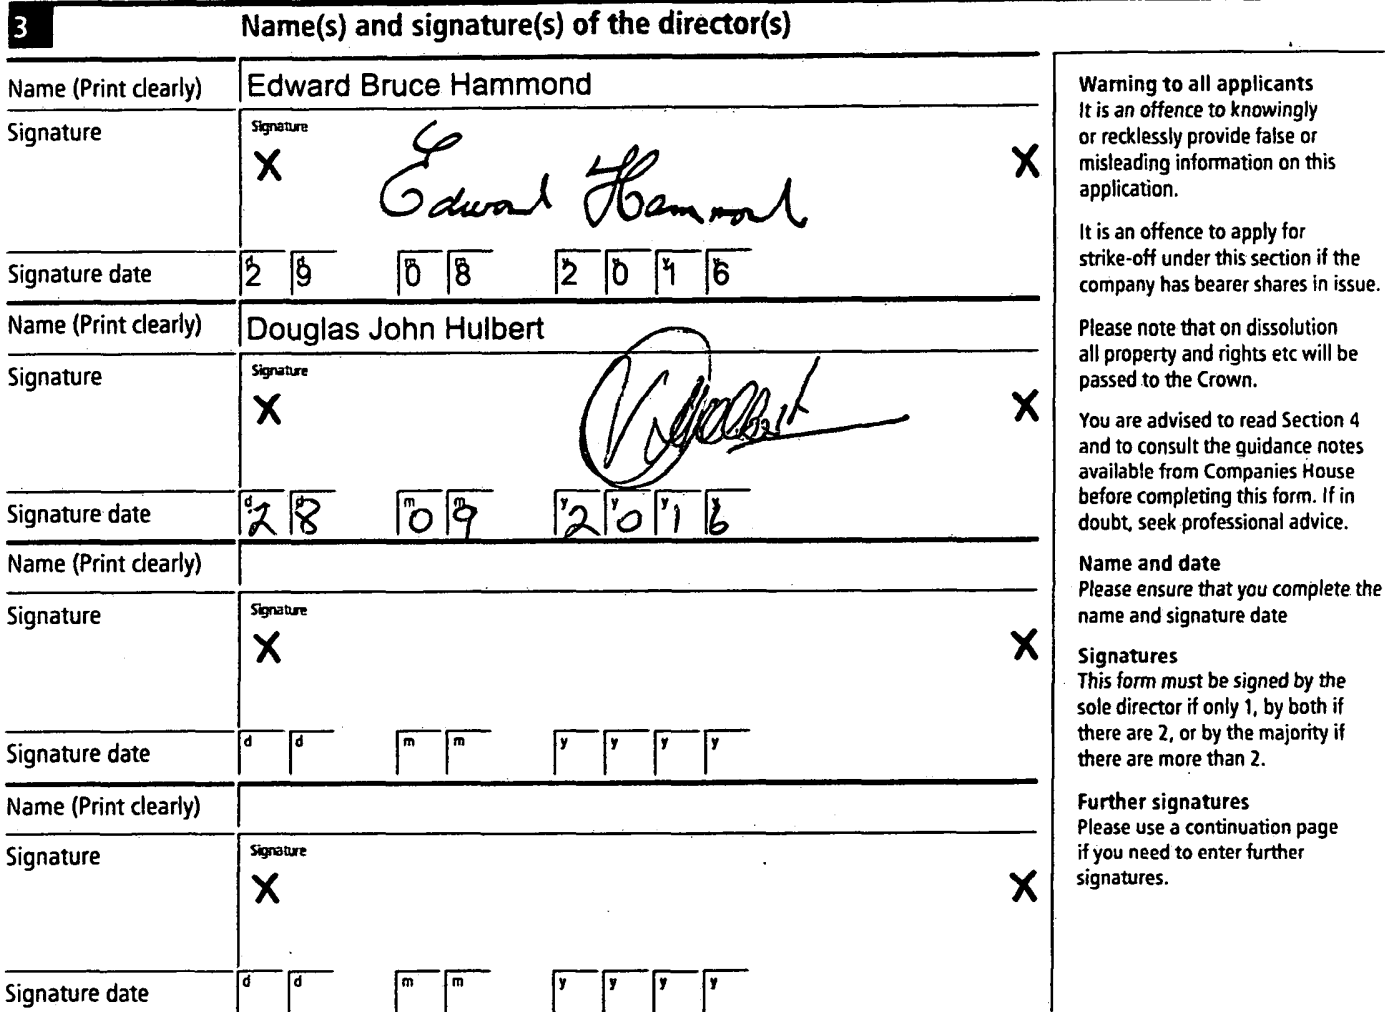 3 Name(s) and signature(s) of the director(s)
Name (Print clearly) Edward Bruce Hammond
Signature Signature
X Edward Hammond X
Signature date d2 d9 m0 m8 y2 y0 y1 y6
Name (Print clearly) Douglas John Hulbert
Signature Signature
X X
Signature date d2 d8 m0 m9 y2 y0 y1 y6
Name (Print clearly)
Signature Signature
X X
Signature date d d m m y y y y
Name (Print clearly)
Signature Signature
X X
Signature date d d m m y y y y
Warning to all applicants
It is an offence to knowingly
or recklessly provide false or
misleading information on this
application.
It is an offence to apply for
strike-off under this section if the
company has bearer shares in issue.
Please note that on dissolution
all property and rights etc will be
passed to the Crown.
You are advised to read Section 4
and to consult the guidance notes
available from Companies House
before completing this form. If in
doubt, seek professional advice.
Name and date
Please ensure that you complete the
name and signature date
Signatures
This form must be signed by the
sole director if only 1, by both if
there are 2, or by the majority if
there are more than 2.
Further signatures
Please use a continuation page
if you need to enter further
signatures.